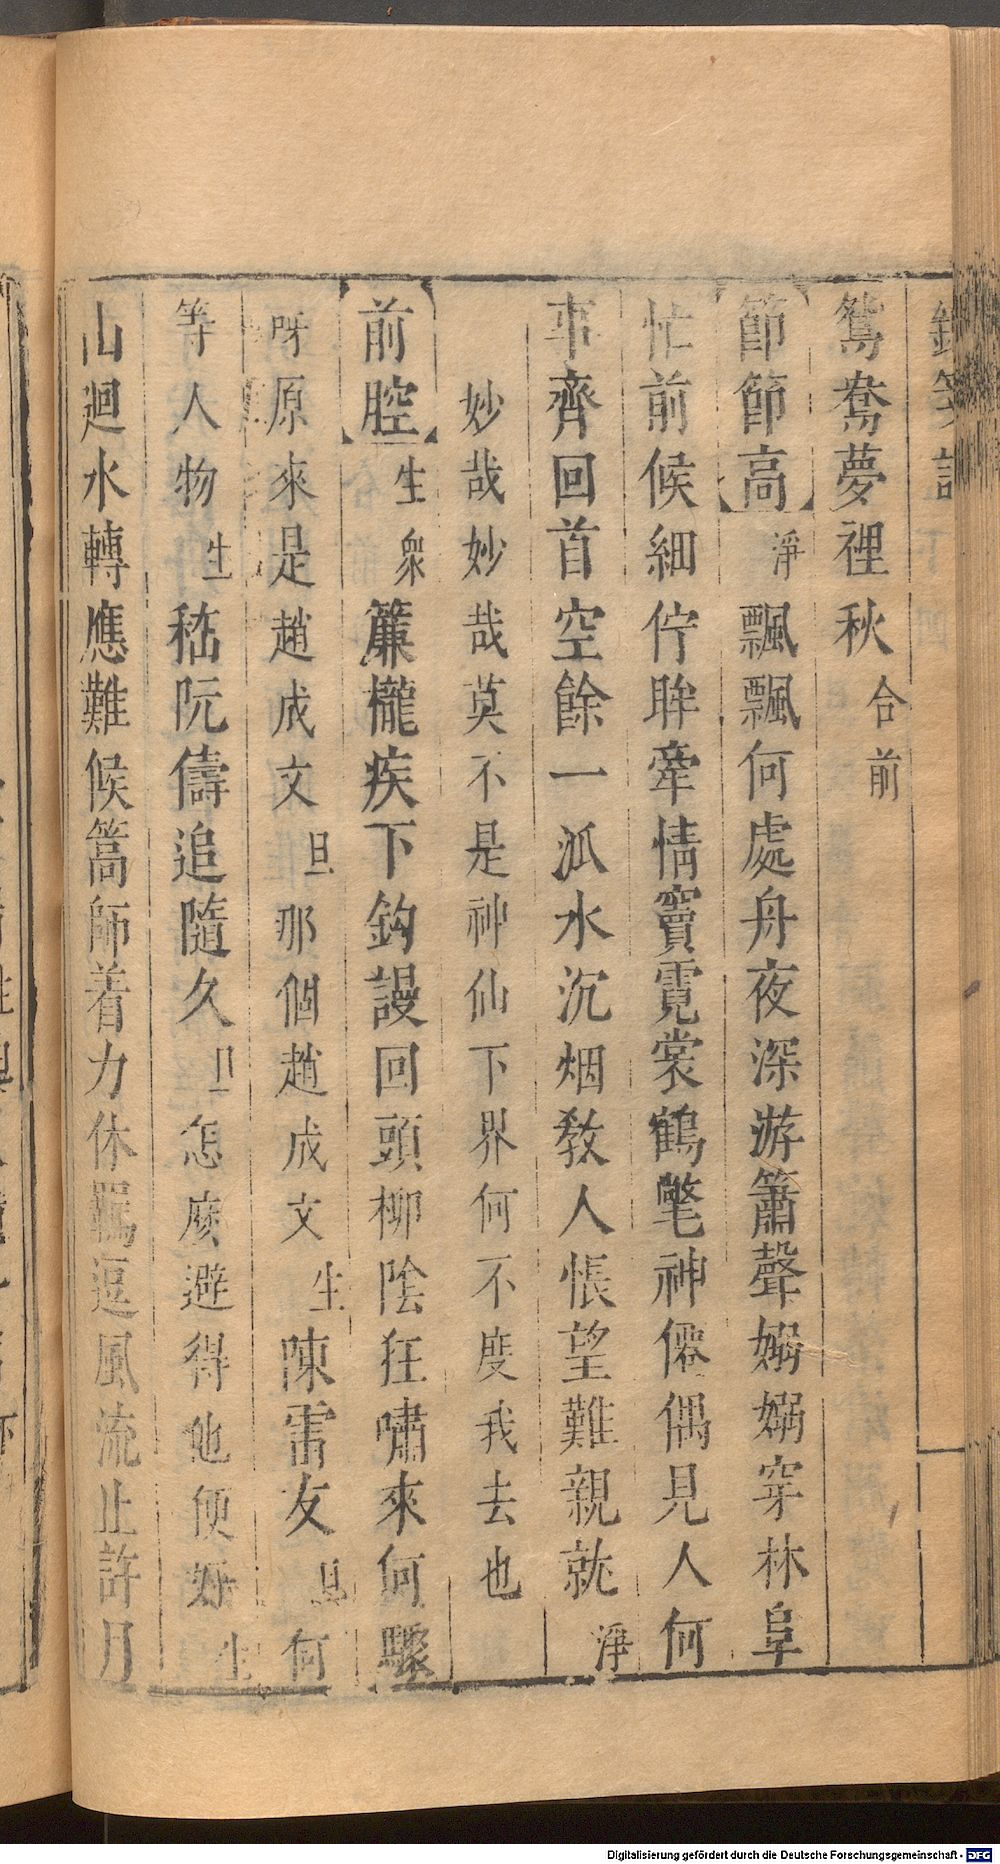 鴛鴦夢裡秋合前
節節高淨飄飄何處舟夜深游簫聲嫋嫋穿林阜
忙前候細佇眸牽情竇霓裳鶴氅神僊偶見人何
事齊回首空餘一派水沉烟教人悵望難親就淨
妙哉妙哉莫不是神仙下界何不度我去也
前腔生衆簾櫳疾下鈎謾回頭柳陰狂嘯來何驟
呀原來是趙成文旦那個趙成文生陳雷友旦何
等人物生嵇阮儔追隨久旦怎麽避得他便好生
山迴水轉應難候篙師着力休羈逗風流止許月
Digitalisierung gefördert durch die Deutsche Forschungsgemeinschaft - DFG